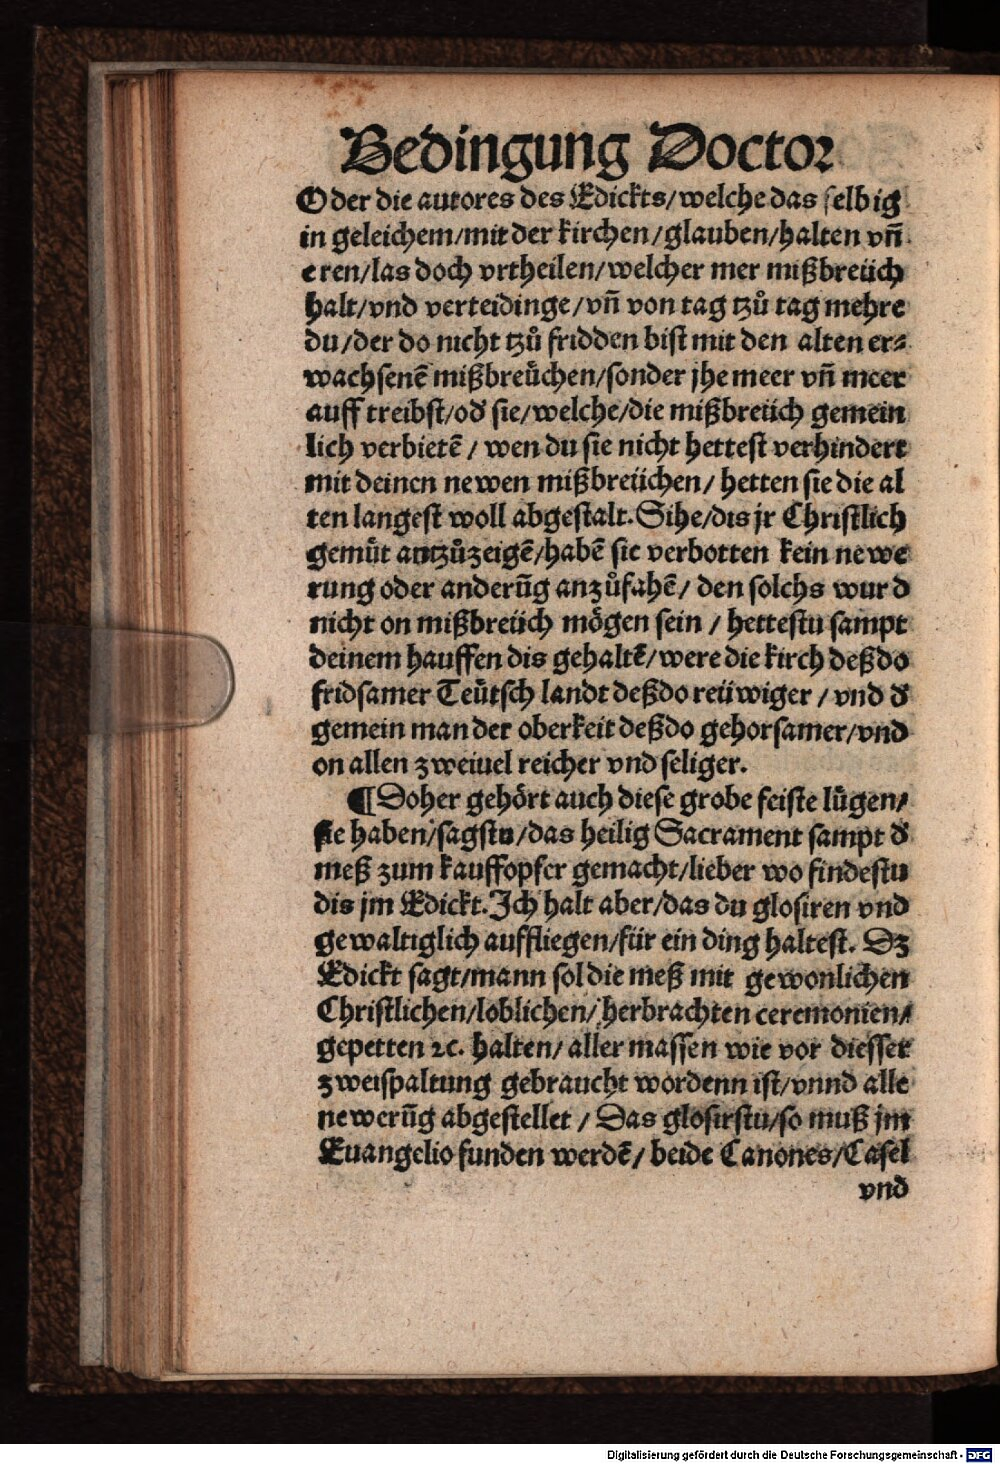 Bedingung Doctor
Oder die autores des Edickts/welche das selbig
in geleichem/mit der kirchen/glauben/halten vn̄
eren/las doch vrtheilen/welcher mer mißbreüch
halt/vnd verteidinge/vn̄ von tag tzů tag mehre
du/der do nicht tzů fridden bist mit den alten er⸗
wachsenē mißbreüchen/sonder jhe meer vn̄ meer
auff treibst/oď sie/welche/die mißbreüch gemein
lich verbietē / wen du sie nicht hettest verhindert
mit deinen newen mißbreüchen/ hetten sie die al
ten langest woll abgestalt. Sihe/dis jr Christlich
gemüt antzůzeigē/habē sie verbotten kein newe
rung oder anderūg anzůfahē/ den solchs wurd
nicht on mißbreüch mögen sein / hettestu sampt
deinem hauffen dis gehaltē/were die kirch deßdo
fridsamer Teütsch landt deßdo reüwiger / vnd ď
gemein man der oberkeit deßdo gehorsamer/vnd
on allen zweiuel reicher vnd seliger.
¶ Doher gehört auch diese grobe feiste lügen/
sie haben/sagstu/das heilig Sacrament sampt ď
meß zum kauffopfer gemacht/lieber wo findestu
dis jm Edickt. Ich halt aber/das du glosiren vnd
gewaltiglich auffliegen/für ein ding haltest. Dz
Edickt sagt/mann sol die meß mit gewonlichen
Christlichen/loblichen/herbrachten ceremonien/
gepetten ꝛc. halten/ aller massen wie vor diesser
zweispaltung gebraucht wordenn ist/vnnd alle
newerūg abgestellet / Das glosirstu/so muß jm
Euangelio funden werdē/ beide Canones/Casel
vnd
Digitalisierung gefördert durch die Deutsche Forschungsgemeinschaft - DFG